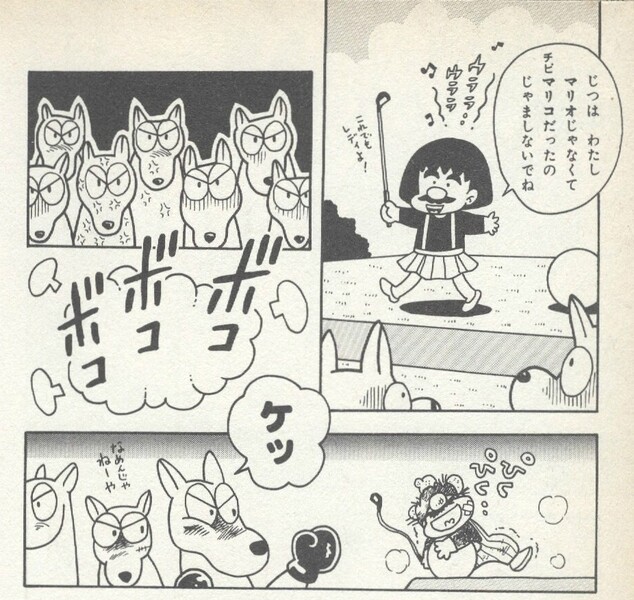 じつは わたし
マリオじゃなくて
チビマリコだったの
じゃましないでね
ウララ
ウララ
これでも
レディよ!
ボコ
ボコ
ボコ
ケッ
なめんじゃ
ねーや
ぴく
ぴく…